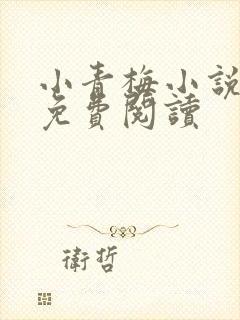 小青梅小說
免費閱讀
衛哲